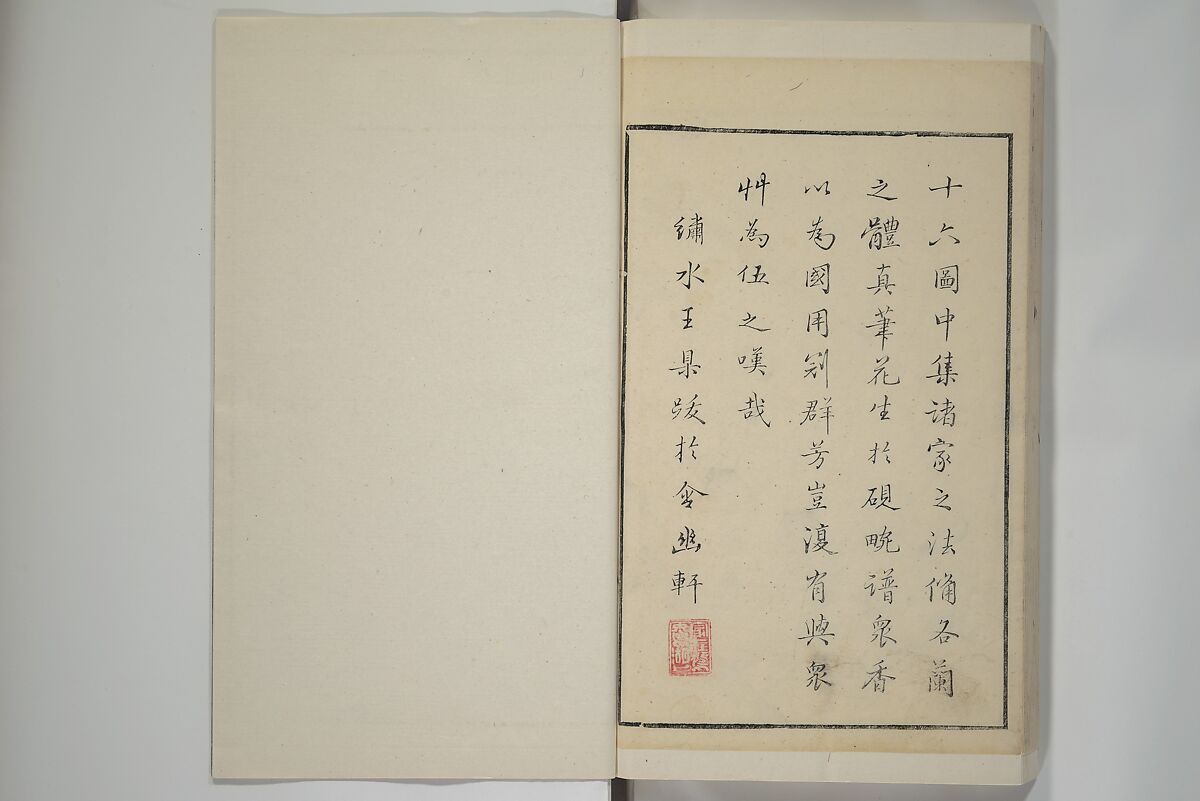 十六圖中集諸家之法備各蘭
之體真筆花生於硯畹譜眾香
以為國用冠群芳豈復有與眾
艸為伍之嘆哉
繡水王臬跋於含幽軒